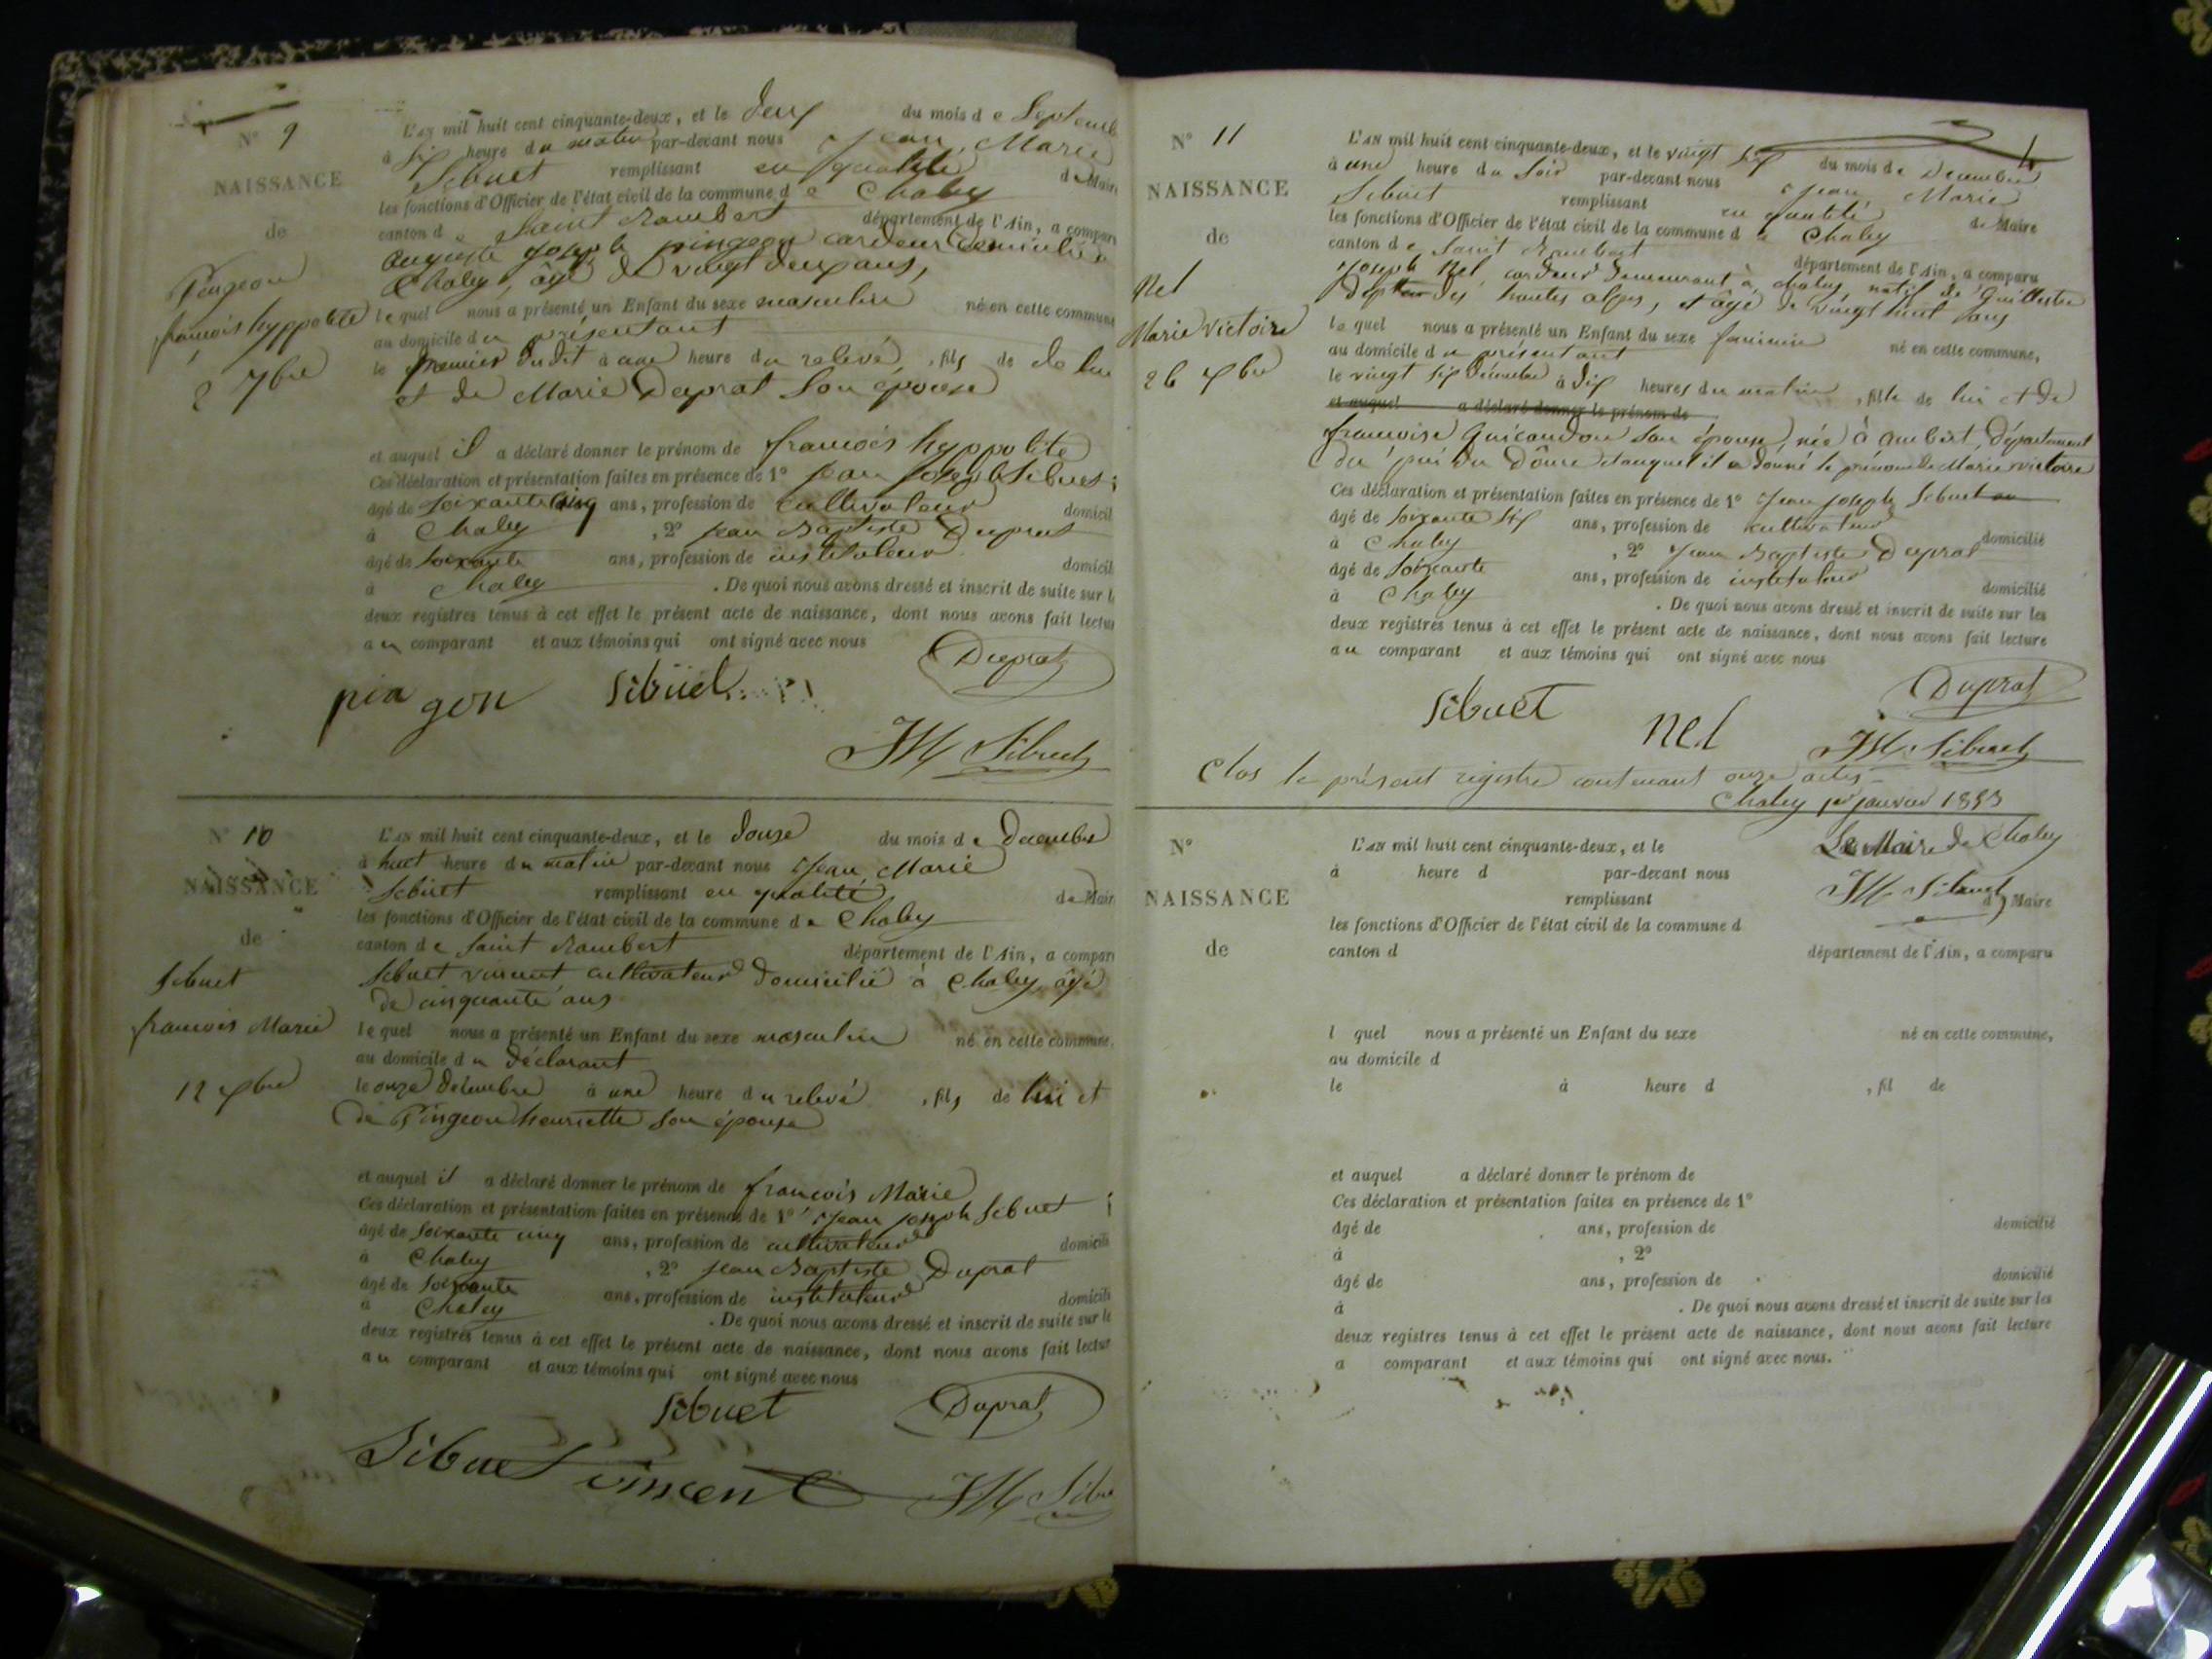 N° 9
NAISSANCE
de
Pingeon
françois hyppolite
2 7bre
L'AN mil huit cent cinquante-deux, et le deux du mois de Septemb
à Six heure du matin par-devant nous Jean Marie
Sibuet remplissant en qualité de Mair
les fonctions d'Officier de l'état civil de la commune de Chaley
canton de Saint Rambert département de l'Ain, a compar
auguste joseph pingeon cardeur domicilié à
Chaley, âgé de vingt deux ans,
lequel nous a présenté un Enfant du sexe masculin né en cette commune
au domicile du présentant
le premier dudit à une heure du relevé, fils de de lui
et de Marie Duprat son épouse
et auquel il a déclaré donner le prénom de françois hyppolite
Ces déclaration et présentation faites en présence de 1° jean joseph Sibuet;
âgé de soixante cinq ans, profession de cultivateur domicil
à Chaley , 2° jean Baptiste Duprat
âgé de soixante ans, profession de instituteur domicil
à Chaley . De quoi nous avons dressé et inscrit de suite sur l
deux registres tenus à cet effet le présent acte de naissance, dont nous avons fait lectur
au comparant et aux témoins qui ont signé avec nous
pin gon Sibuet Duprat
JM Sibuet
N° 10
NAISSANCE
de
Sibuet
francois Marie
12 xbre
L'AN mil huit cent cinquante-deux, et le douze du mois de Decembre
à huit heure du matin par-devant nous Jean Marie
Sibuet remplissant en qualité de Mair
les fonctions d'Officier de l'état civil de la commune de Chaley
canton de Saint Rambert département de l'Ain, a compar
Sibuet vincent cultivateur domicilié à Chaley âgé
de cinquante ans
lequel nous a présenté un Enfant du sexe masculin né en cette commune,
au domicile du déclarant
le onze decembre à une heure du relevé , fils de lui et
de Pingeon henriette son épouse
et auquel il a déclaré donner le prénom de francois Marie
Ces déclaration et présentation faites en présence de 1° Jean joseph Sibuet ;
âgé de soixante cinq ans, profession de cultivateur domicili
à Chaley , 2° jean Baptiste Duprat
âgé de soixante ans, profession de instituteur domicili
à Chaley . De quoi nous avons dressé et inscrit de suite sur le
deux registres tenus à cet effet le présent acte de naissance, dont nous avons fait lectur
au comparant et aux témoins qui ont signé avec nous
Sibuet Duprat
Sibuet vincent JM Sibu
N° 11
NAISSANCE
de
Nel
Marie victoire
26 xbre
L'AN mil huit cent cinquante-deux, et le vingt six du mois de Decembre
à une heure du soir par-devant nous Jean Marie
Sibuet remplissant en qualité de Maire
les fonctions d'Officier de l'état civil de la commune de Chaley
canton de Saint Rambert département de l'Ain, a comparu
Joseph Nel, cardeur demeurant à chaley natif de Guillestre
des hautes alpes, et âgé de vingt huit ans
lequel nous a présenté un Enfant du sexe feminin né en cette commune,
au domicile du présentant
le vingt six décembre à dix heures du matin , fille de lui et de
et auquel a déclaré donner le prénom de
francoise son épouse, née à ambert, département
du pui du Dôme et auquel il a donné le prénom de Marie victoire
Ces déclaration et présentation faites en présence de 1° Jean joseph Sibuet
âgé de soixante six ans, profession de cultivateur domicilié
à Chaley , 2° Jean Baptiste Duprat
âgé de soixante ans, profession de instituteur domicilié
à Chaley . De quoi nous avons dressé et inscrit de suite sur les
deux registres tenus à cet effet le présent acte de naissance, dont nous avons fait lecture
au comparant et aux témoins qui ont signé avec nous
Sibuet nel Duprat
JM Sibuet
Clos le présent registre contenant onze actes
Chaley 1er janvier 1853
Le Maire de Chaley
JM Sibuet
N°
NAISSANCE
de
L'AN mil huit cent cinquante-deux, et le
à heure d par-devant nous
remplissant d Maire
les fonctions d'Officier de l'état civil de la commune d
canton d département de l'Ain, a comparu
l quel nous a présenté un Enfant du sexe né en cette commune,
au domicile d
le à heure d , fil de
et auquel a déclaré donner le prénom de
Ces déclaration et présentation faites en présence de 1°
âgé de ans, profession de domicilié
à , 2°
âgé de ans, profession de domicilié
à . De quoi nous avons dressé et inscrit de suite sur les
deux registres tenus à cet effet le présent acte de naissance, dont nous avons fait lecture
a comparant et aux témoins qui ont signé avec nous.